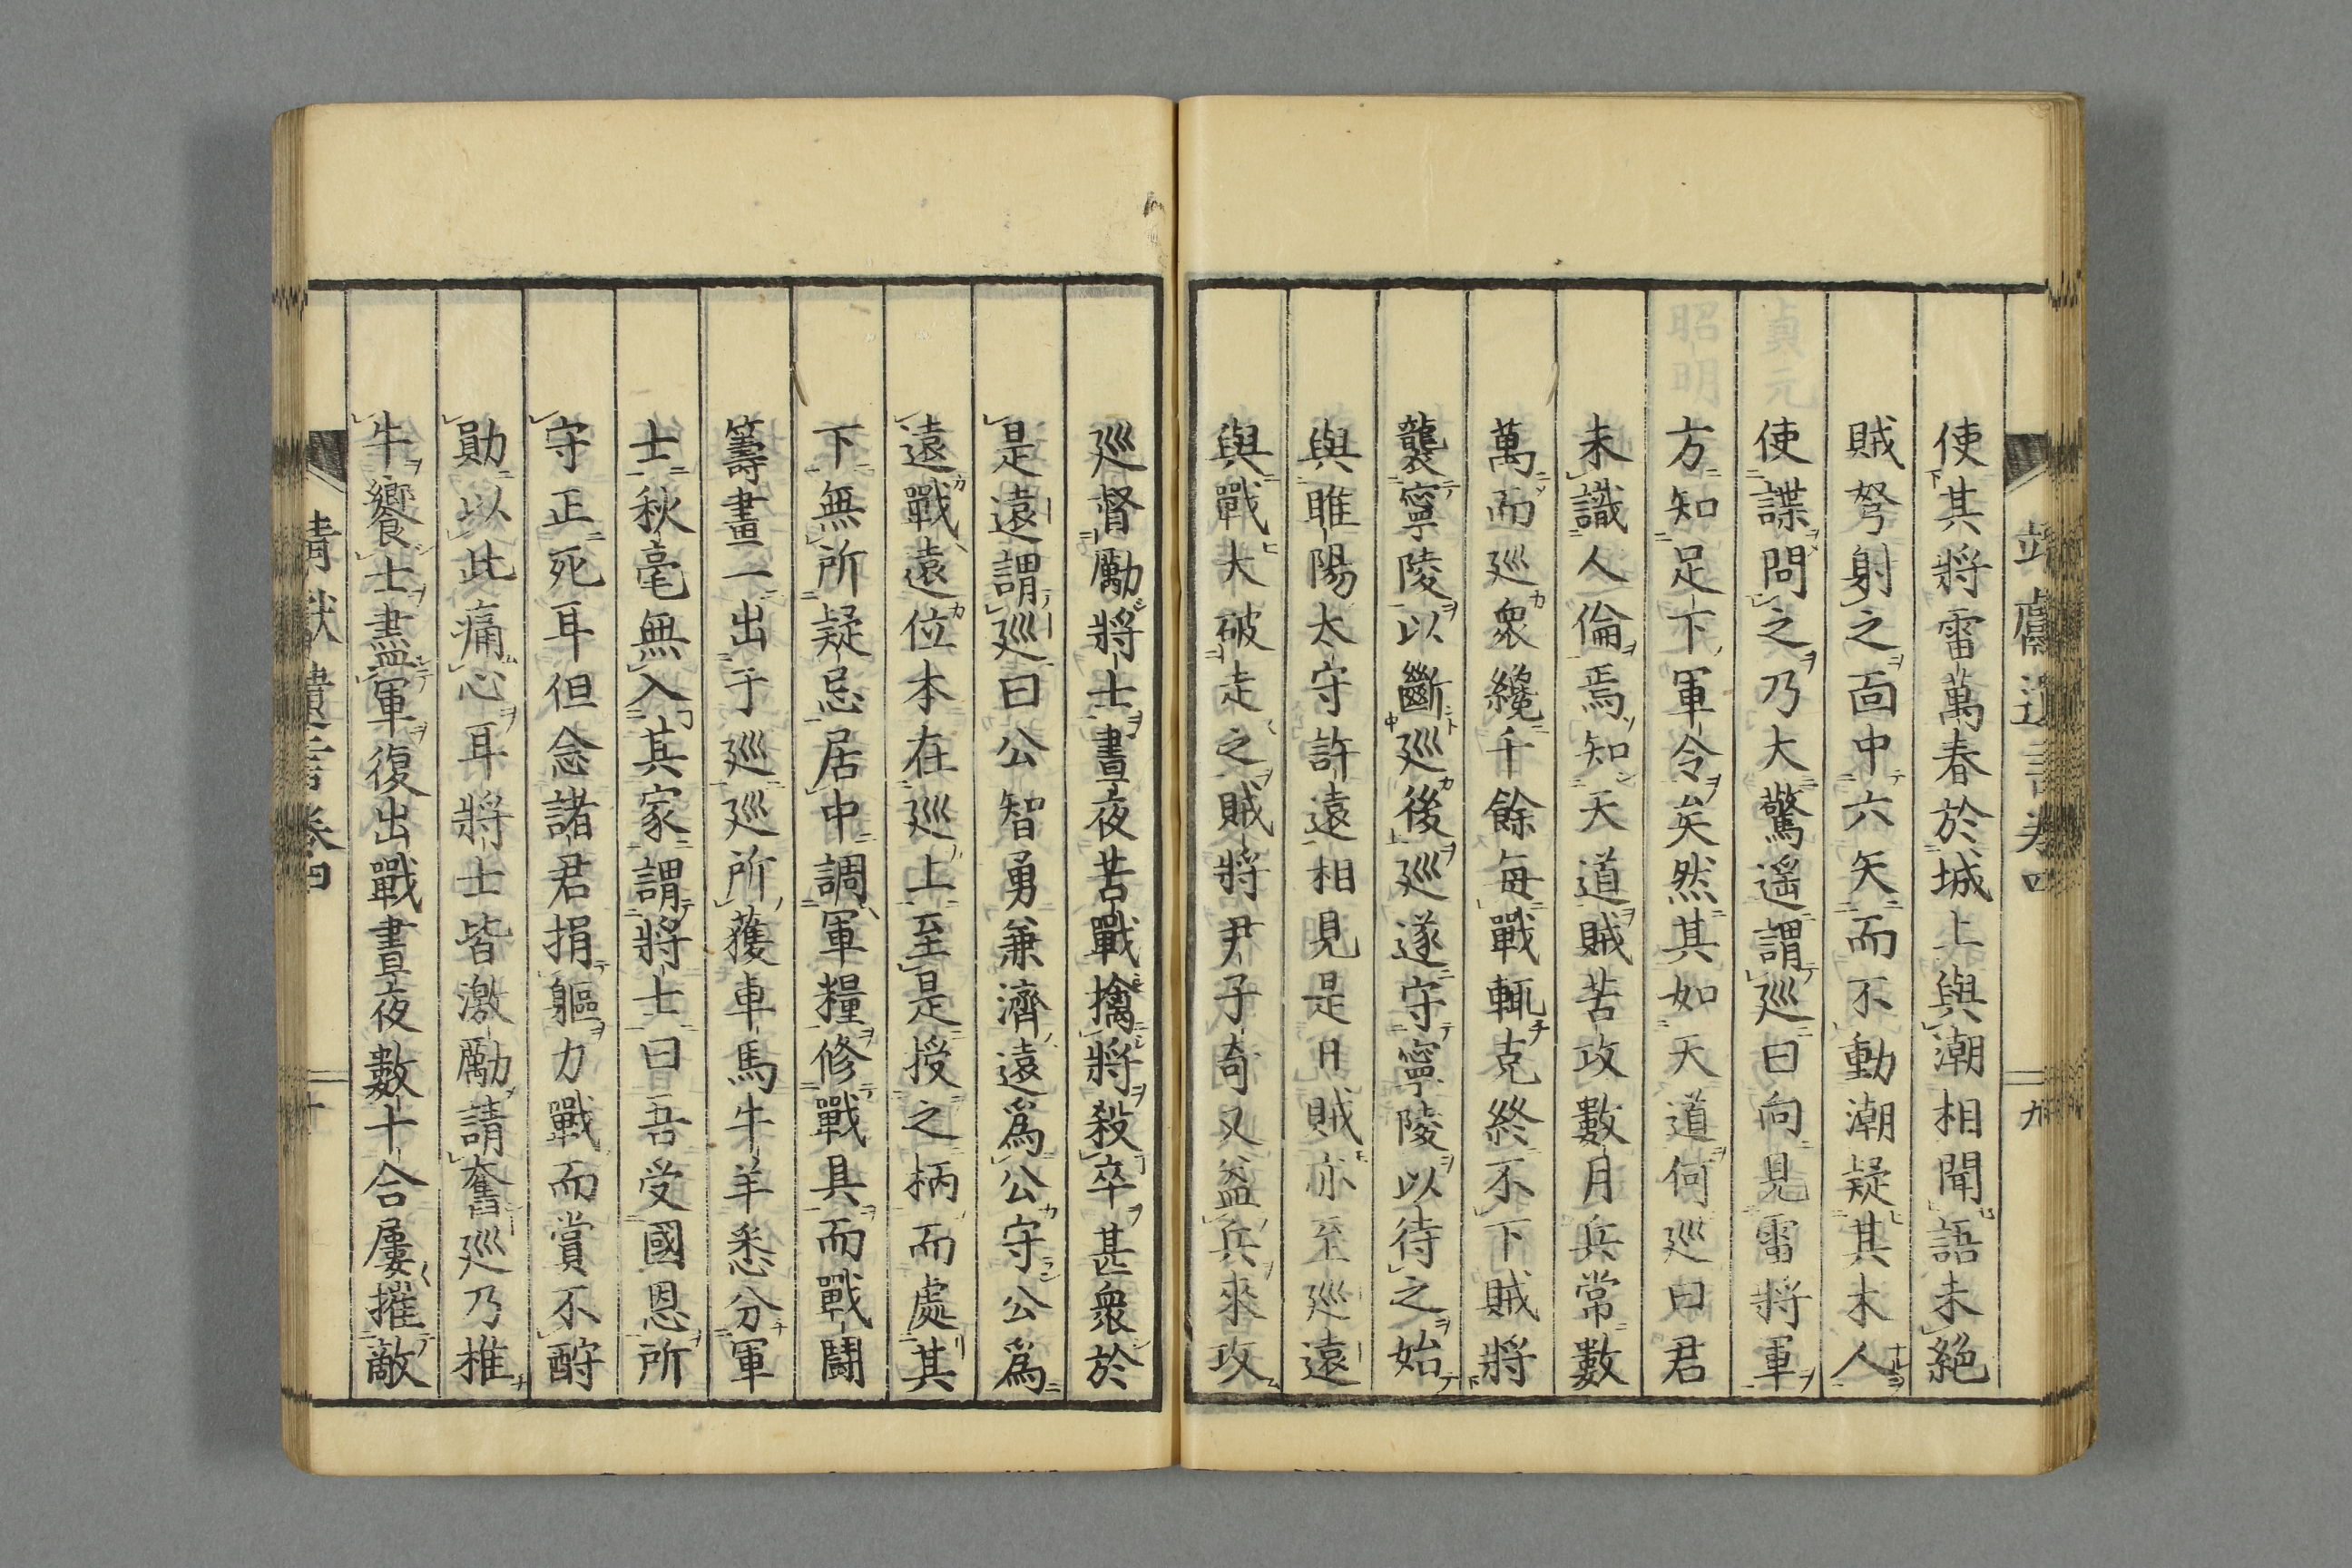 使其將雷萬春於城上與潮相聞語未絕
賊弩射之面中六矢而不動潮疑其木人
使諜問之乃大驚遥謂巡曰向見雷將軍
方知足下軍令矣然其如天道何巡曰君
未識人倫焉知天道賊苦攻數月兵常數
萬而巡衆纔千餘每戰輒克終不下賊將
襲寧陵以斷巡後巡遂守寧陵以待之始
與睢陽太守許遠相見是日賊亦至巡遠
與戰大破走之賊將尹子奇又益兵來攻
巡督勵將士晝夜苦戰擒將殺卒甚衆於
是遠謂巡曰公智勇兼濟遠爲公守公爲
遠戰遠位本在巡上至是授之柄而處其
下無所疑忌居中調軍糧修戰具而戰鬪
籌畫一出于巡巡所獲車馬牛羊悉分軍
士秋毫無入其家謂將士曰吾受國恩所
守正死耳但念諸君捐軀力戰而賞不酧
勛以此痛心耳將士皆激勵請奮巡乃椎
牛饗士盡軍復出戰晝夜數十合屢摧敵
卷四
九
十